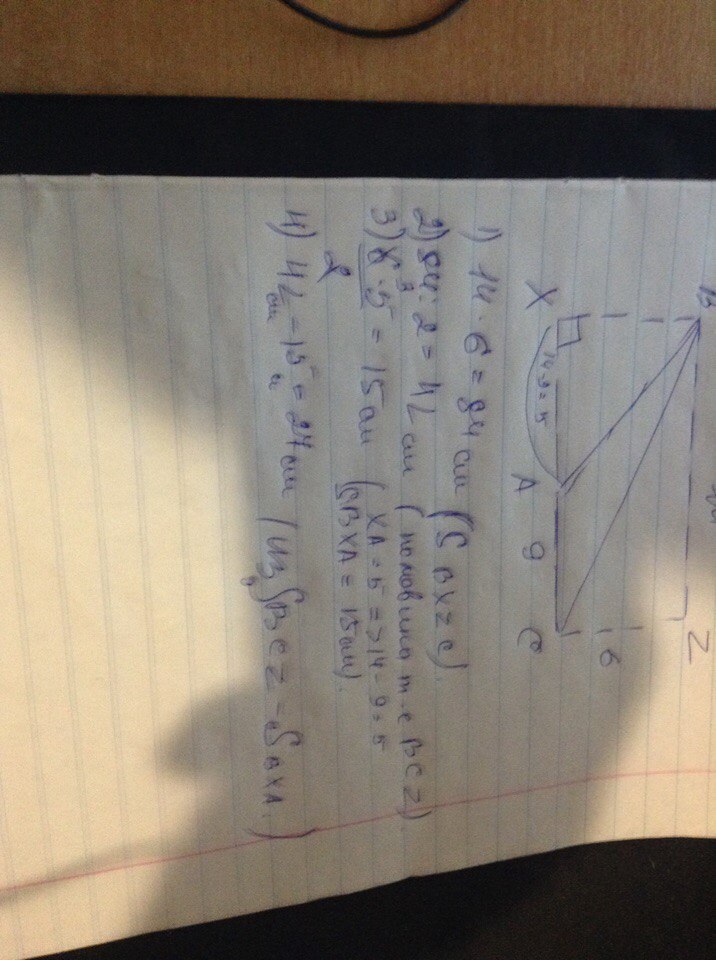 B
14
Z
6
X
14-9=5
A
9
C
1) 14 · 6 = 84 см (S BXZC)
2) 84 : 2 = 42 см (половина т.е BCZ)
3) 6 · 5 = 15 см (XA = 5 => 14 - 9 = 5
2
SBXA = 15 см).
4) 42 см - 15 = 27 см (Из S BCZ - S BXA.)